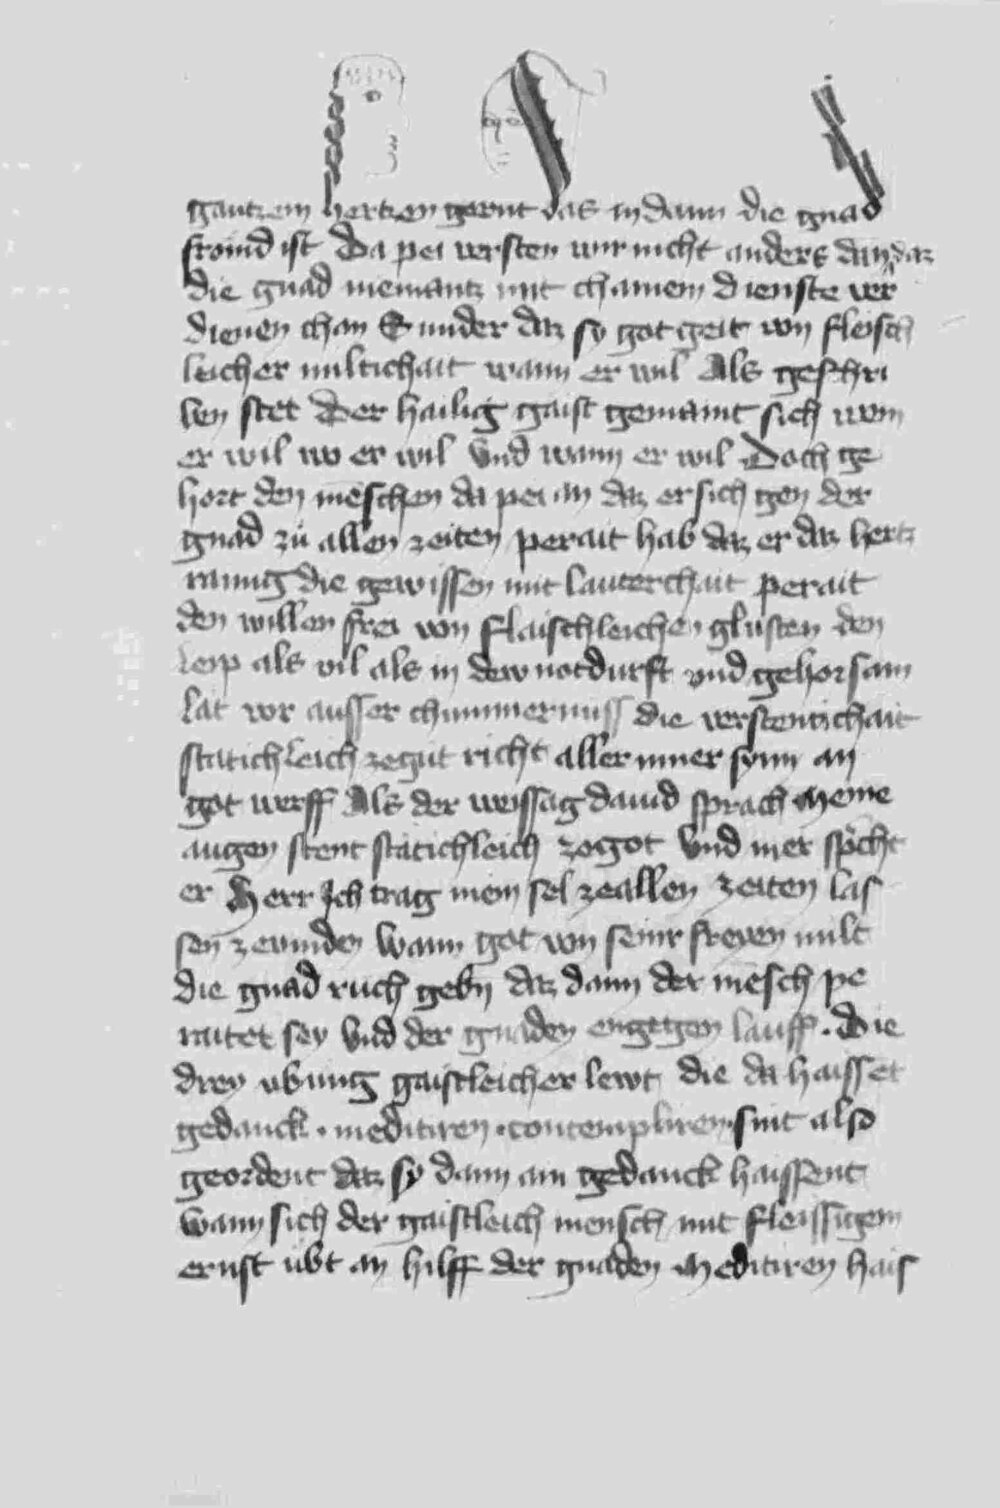 gantzem hertzen gernt das in dann die gnad
fröind ist Da pei versten wir nicht anders dann daz
die gnad niemantz mit chainem dienste ver
dienen chan Sunder daz sy got geit von fleisch
leicher miltichait wann er wil Als geschri
ben stet Der hailig gaist gemaint sich wem
er wil wo er wil Vnd wann er wil Doch ge
hort den mēschen da pei an daz er sich gen der
gnad zů allen zeiten perait hab daz er daz hertz
rainig die gewissen mit lauterchait perait
den willen frei von flaischleichen glusten den
leip als vil als in dew notdurft vnd gehorsam
lat vor ausser chummernuss die verstentichait
statichleich zegut richt aller inner synn an
got werff Als der weissag dauid sprach Meine
augen stent statichleich ze got Vnd mer spͤcht
er Herr Ich trag mein sel ze allen zeiten las
sen ze vinden Wann got von seinr freyen milt
die gnad ruch gebn̄ daz dann der mēsch pe
raitet sey Vnd der gnaden engegen lauff . Die
drey vbung gaistleicher lewt die da haisset
gedanck . meditiren . contempliren . sint also
geordent daz sy dann ain gedanck haissent
Wann sich der gaistleich mensch mit fleissigem
ernst übt an hilff der gnaden Meditiren hais